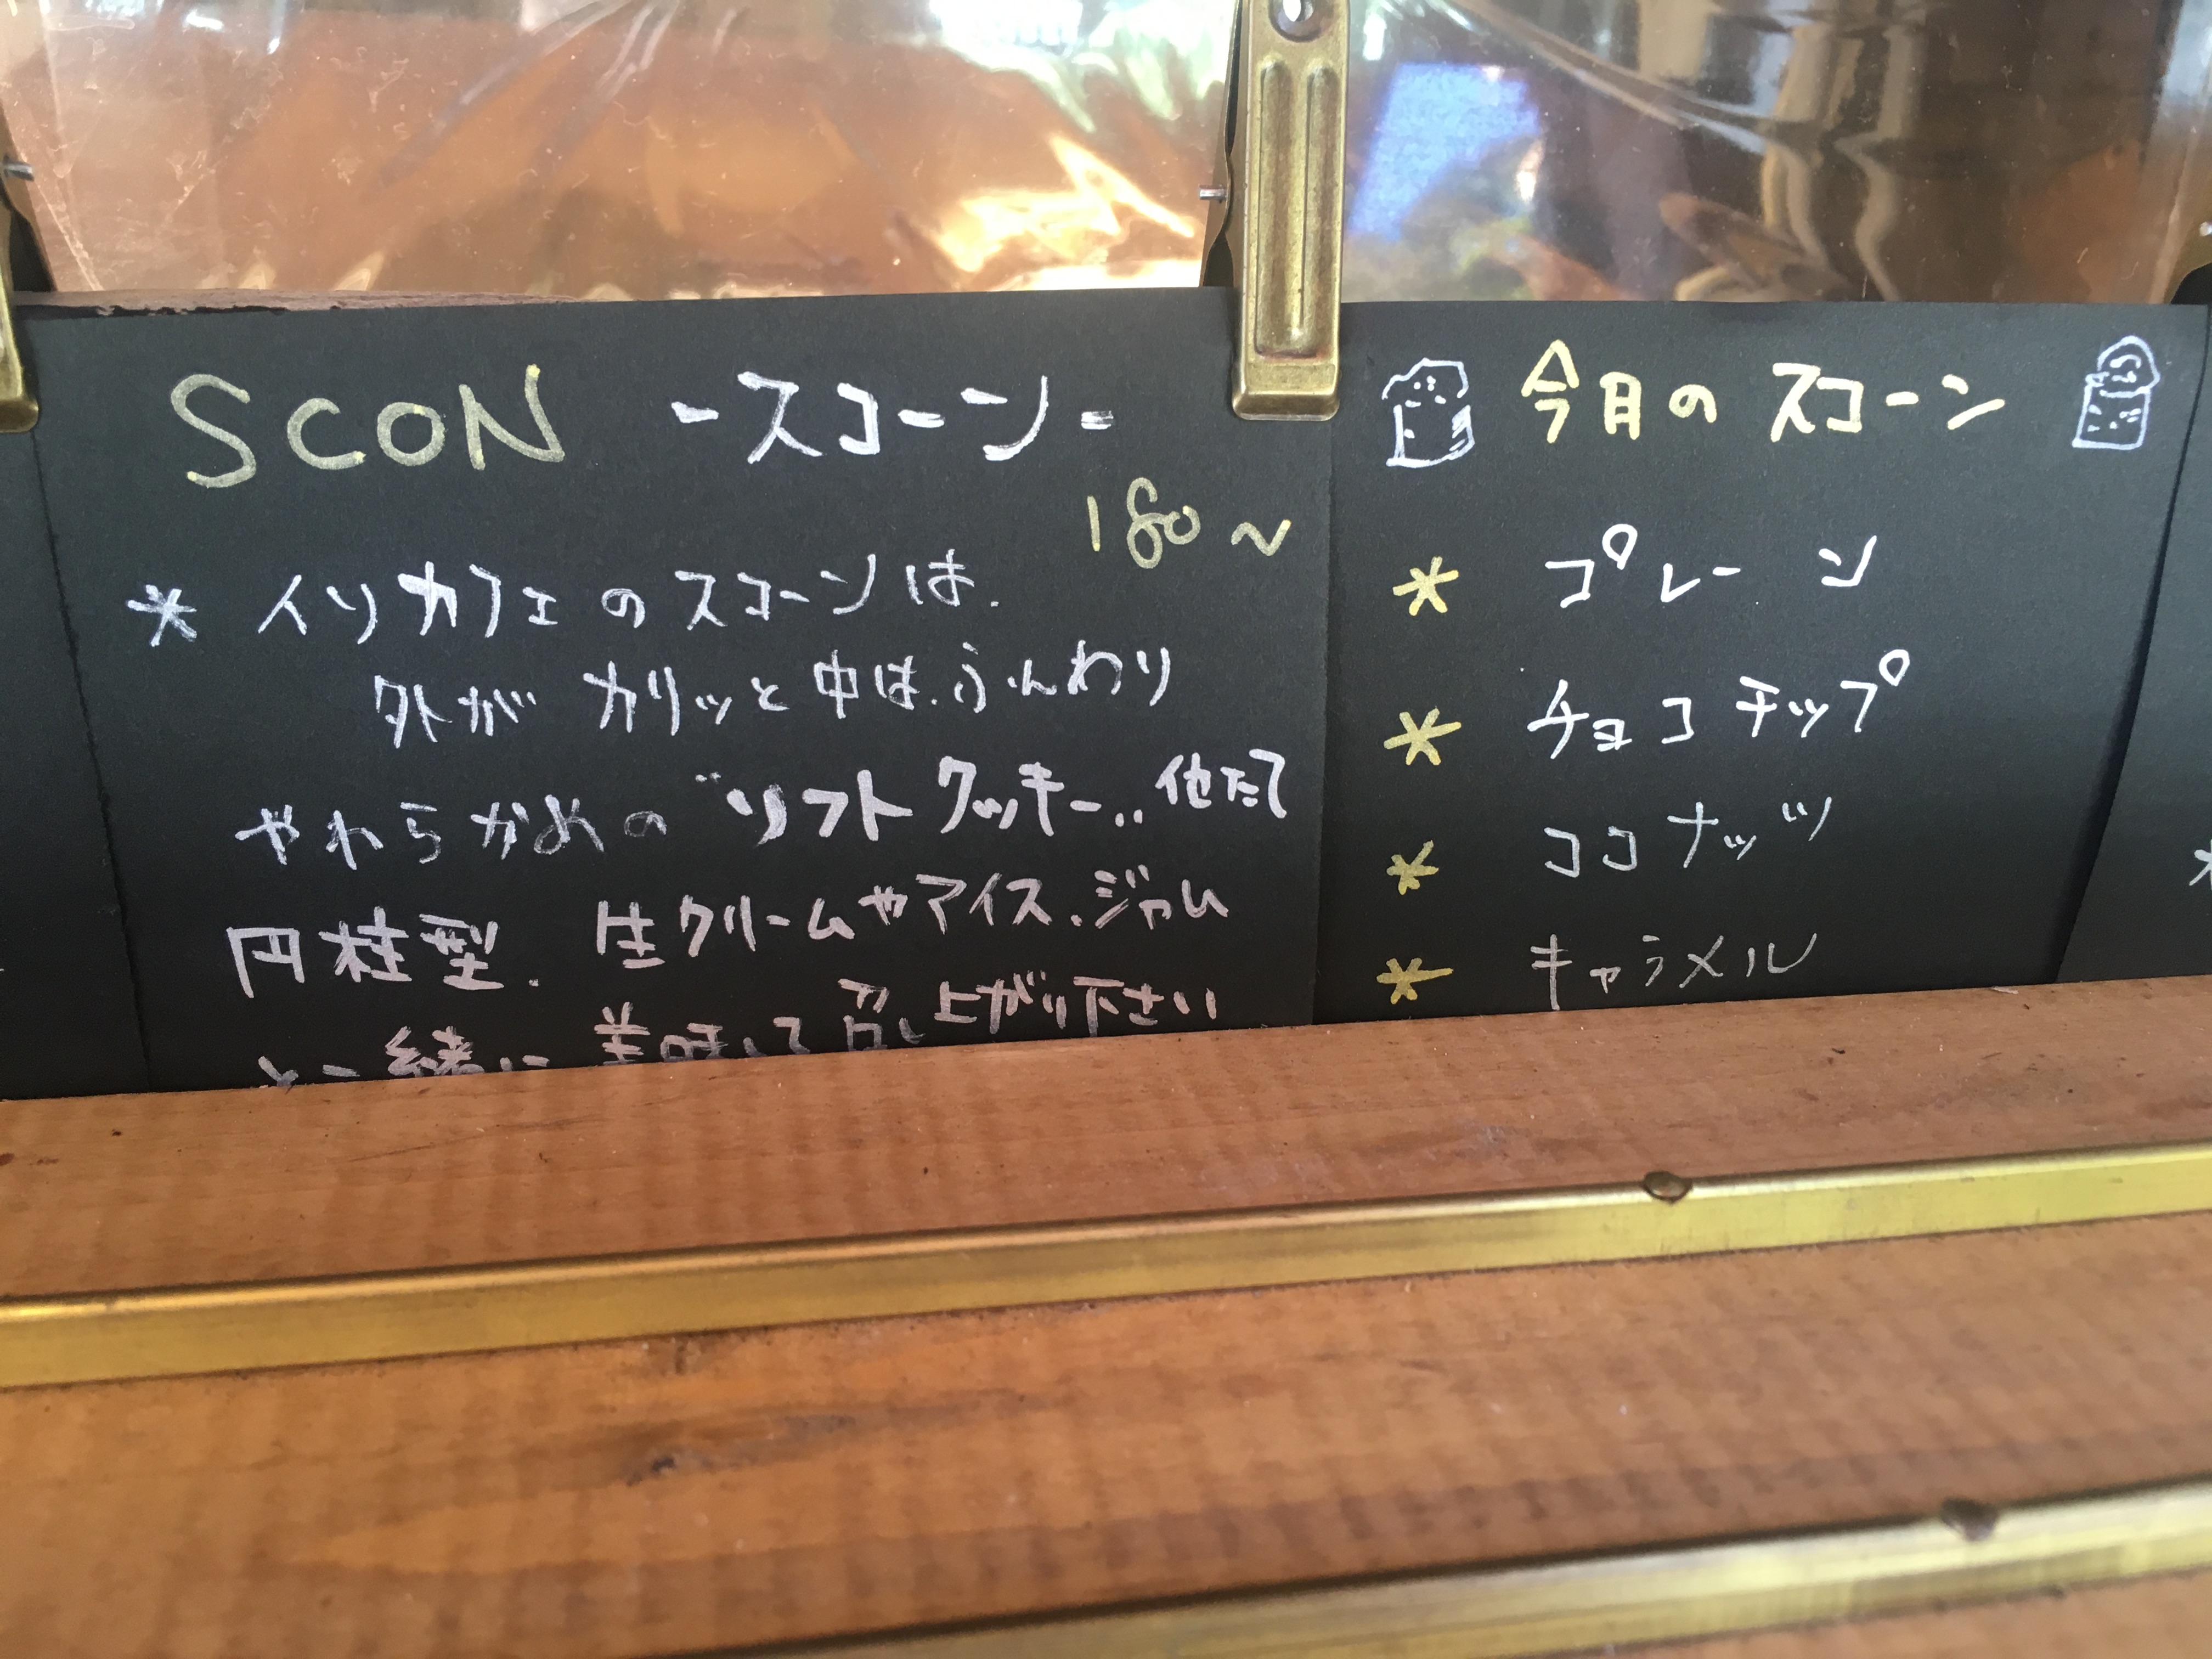 SCON -スコーン-
180～
* イリカフェのスコーンは、
外がカリッと中は、ふんわり
やわらかめの"ソフトクッキー"。他たて
円柱型、生クリームやアイス、ジャム
と一緒に美味して召し上がり下さい
今月のスコーン
* プレーン
* チョコチップ
* ココナッツ
* キャラメル